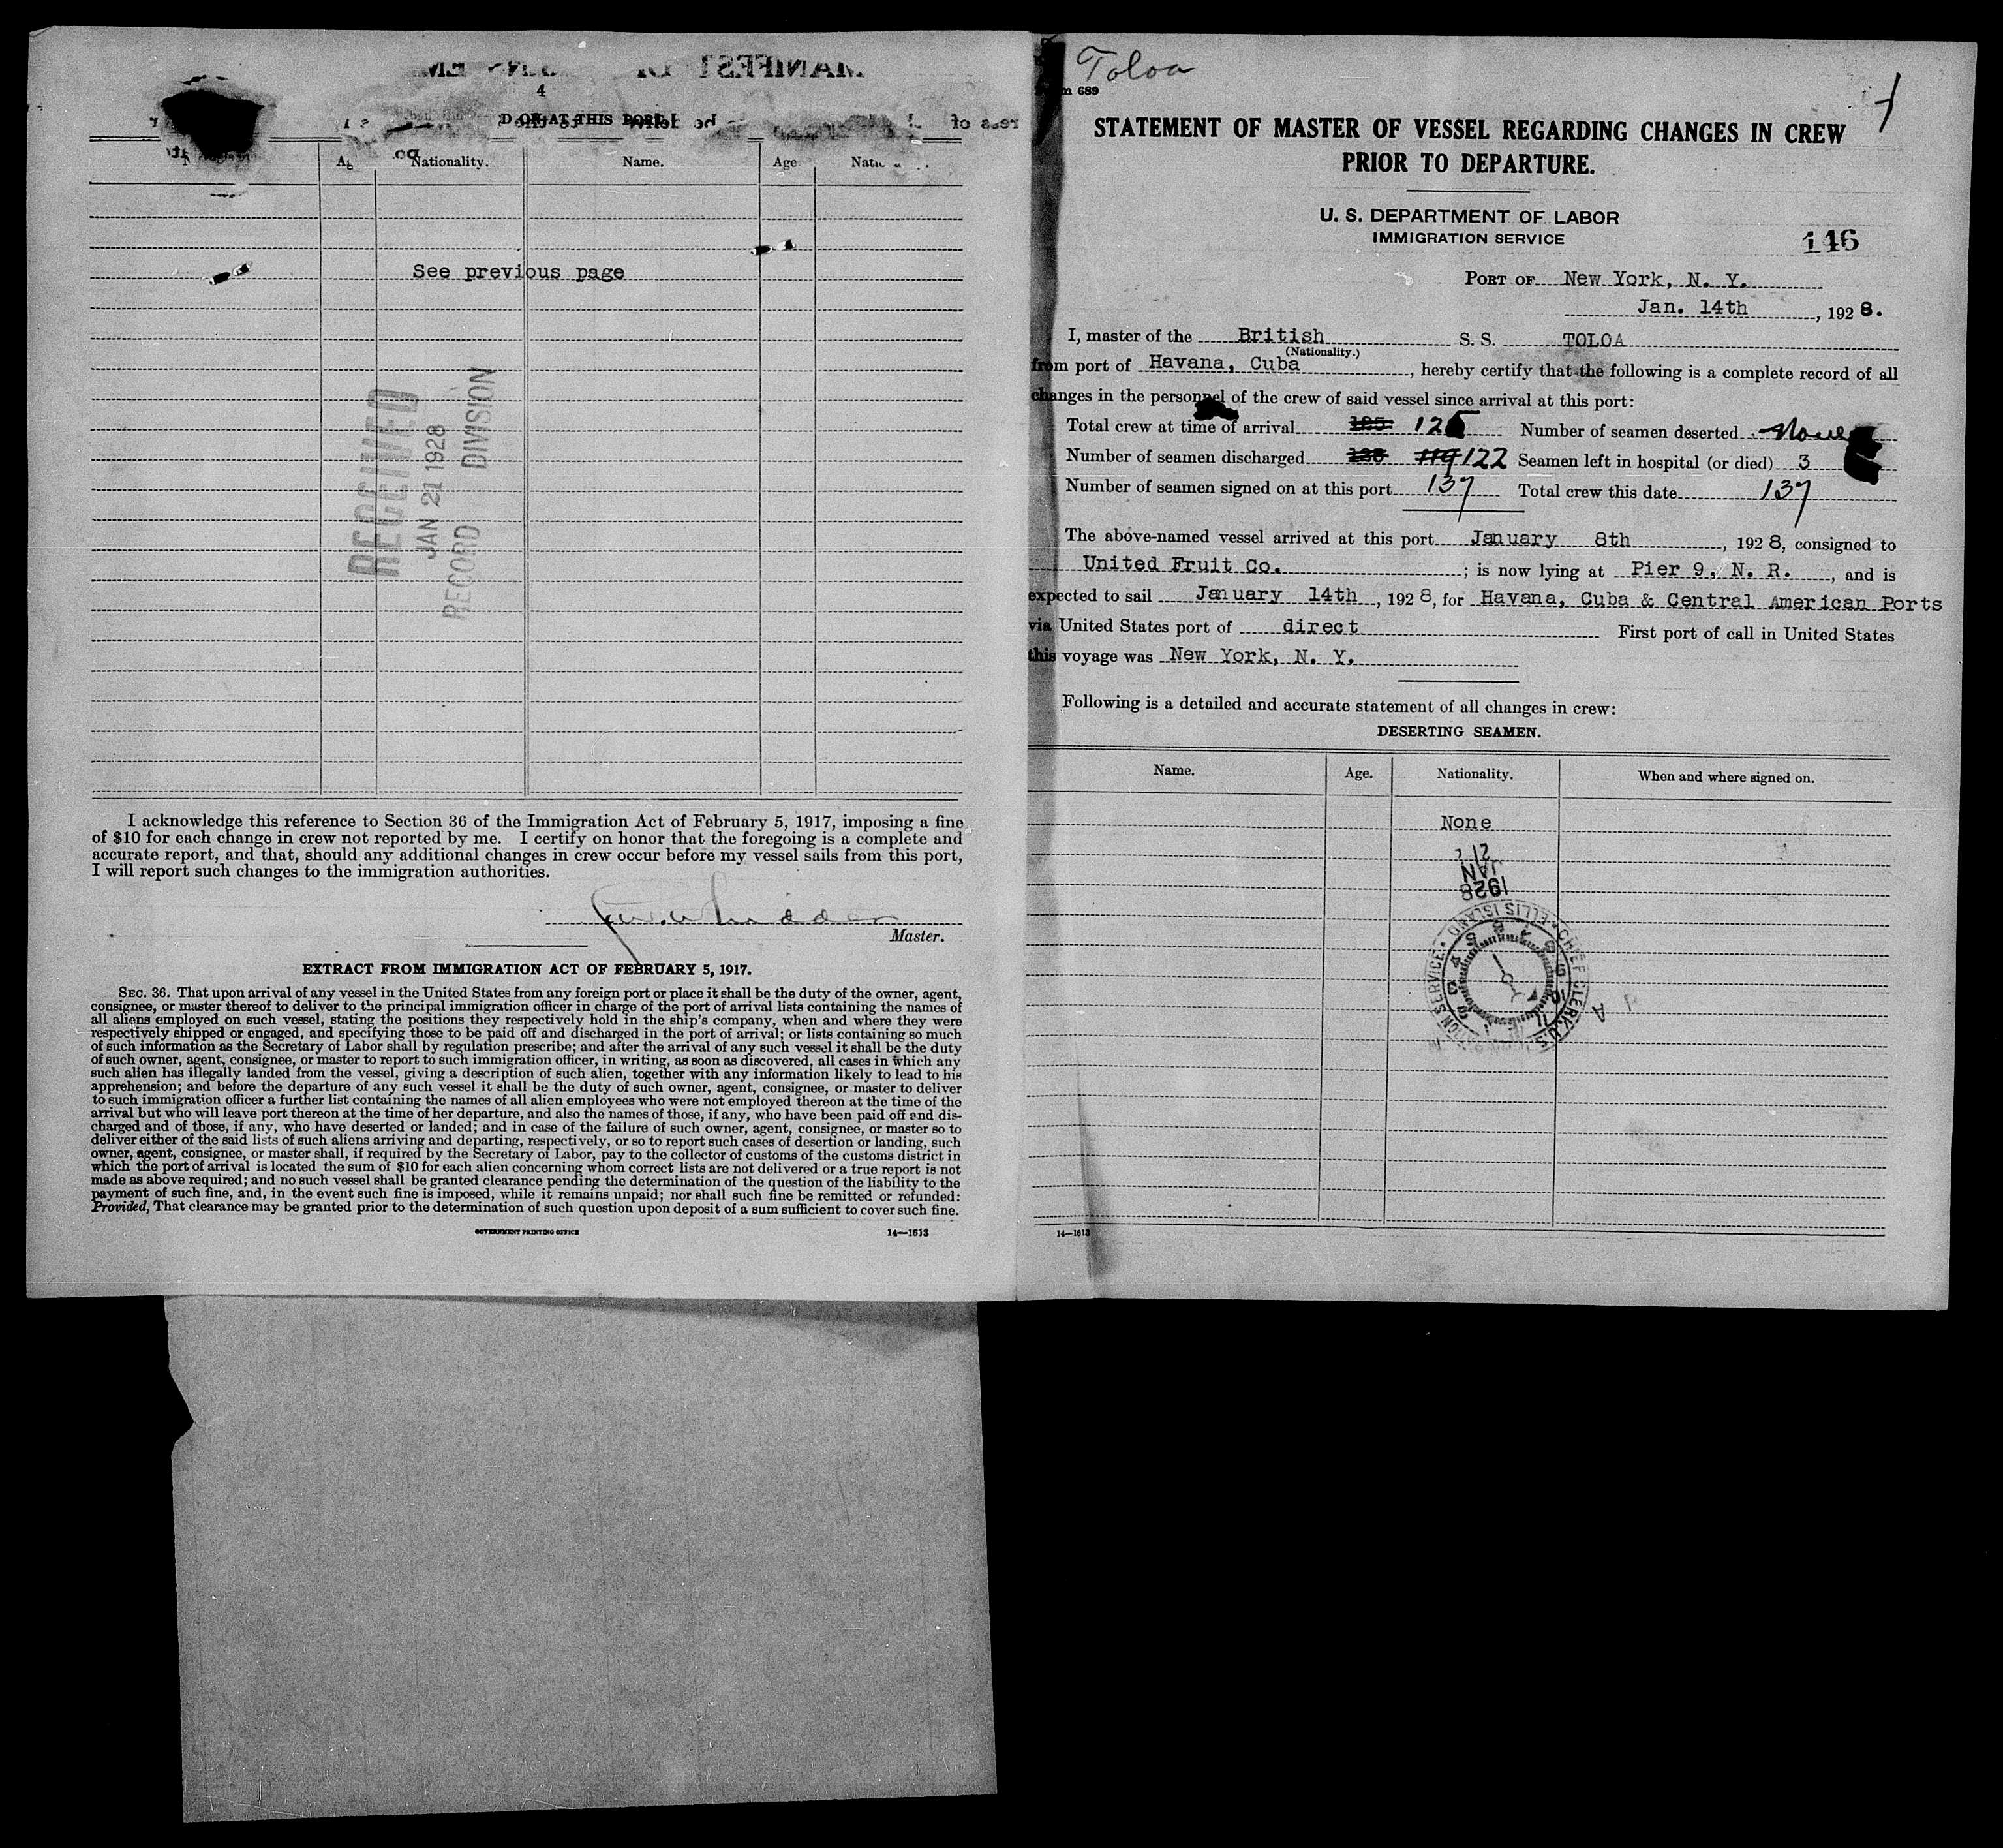 4
D ON AT THIS PORT
Nationality. Name. Age
See previous page
RECEIVED
JAN 21 1928
RECORD DIVISION
I acknowledge this reference to Section 36 of the Immigration Act of February 5, 1917, imposing a fine
of $10 for each change in crew not reported by me. I certify on honor that the foregoing is a complete and
accurate report, and that, should any additional changes in crew occur before my vessel sails from this port,
I will report such changes to the immigration authorities.
Master.
EXTRACT FROM IMMIGRATION ACT OF FEBRUARY 5, 1917.
SEC. 36. That upon arrival of any vessel in the United States from any foreign port or place it shall be the duty of the owner, agent,
consignee, or master thereof to deliver to the principal immigration officer in charge of the port of arrival lists containing the names of
all aliens employed on such vessel, stating the positions they respectively hold in the ship's company, when and where they were
respectively shipped or engaged, and specifying those to be paid off and discharged in the port of arrival; or lists containing so much
of such information as the Secretary of Labor shall by regulation prescribe; and after the arrival of any such vessel it shall be the duty
of such owner, agent, consignee, or master to report to such immigration officer, in writing, as soon as discovered, all cases in which any
such alien has illegally landed from the vessel, giving a description of such alien, together with any information likely to lead to his
apprehension; and before the departure of any such vessel it shall be the duty of such owner, agent, consignee, or master to deliver
to such immigration officer a further list containing the names of all alien employees who were not employed thereon at the time of the
arrival but who will leave port thereon at the time of her departure, and also the names of those, if any, who have been paid off and dis-
charged and of those, if any, who have deserted or landed; and in case of the failure of such owner, agent, consignee, or master so to
deliver either of the said lists of such aliens arriving and departing, respectively, or so to report such cases of desertion or landing, such
owner, agent, consignee, or master shall, if required by the Secretary of Labor, pay to the collector of customs of the customs district in
which the port of arrival is located the sum of $10 for each alien concerning whom correct lists are not delivered or a true report is not
made as above required; and no such vessel shall be granted clearance pending the determination of the question of the liability to the
payment of such fine, and, in the event such fine is imposed, while it remains unpaid; nor shall such fine be remitted or refunded:
Provided, That clearance may be granted prior to the determination of such question upon deposit of a sum sufficient to cover such fine.
GOVERNMENT PRINTING OFFICE 14—1613
Toloa
689
STATEMENT OF MASTER OF VESSEL REGARDING CHANGES IN CREW
PRIOR TO DEPARTURE.
U. S. DEPARTMENT OF LABOR
IMMIGRATION SERVICE
146
PORT OF New York, N. Y.
Jan. 14th, 1928.
I, master of the British S. S. TOLOA
(Nationality.)
from port of Havana, Cuba, hereby certify that the following is a complete record of all
changes in the personnel of the crew of said vessel since arrival at this port:
Total crew at time of arrival 125 Number of seamen deserted None
Number of seamen discharged 119 122 Seamen left in hospital (or died) 3
Number of seamen signed on at this port 137 Total crew this date 137
The above-named vessel arrived at this port January 8th, 1928, consigned to
United Fruit Co.; is now lying at Pier 9, N. R., and is
expected to sail January 14th, 1928, for Havana, Cuba & Central American Ports
via United States port of direct First port of call in United States
this voyage was New York, N. Y.
Following is a detailed and accurate statement of all changes in crew:
DESERTING SEAMEN.
Name. Age. Nationality. When and where signed on.
None
21
JAN
1928
CHIEF CLERK U.S. IMMIGRATION SERVICE ELLIS ISLAND
14—1613